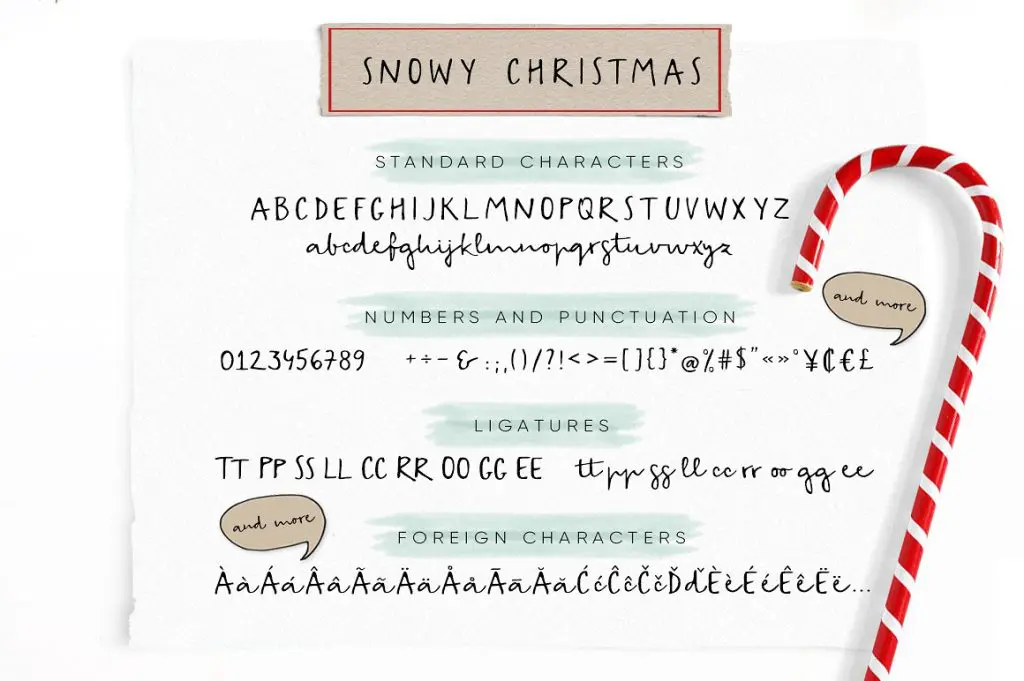 SNOWY CHRISTMAS
STANDARD CHARACTERS
ABCDEFGHIJKLMNOPQRSTUVWXYZ
abcdefghijklmnopqrstuvwxyz
NUMBERS AND PUNCTUATION
and more
0123456789 +÷–&:;,()/?!<>=[]{}*@%#$"«»°¥₵€£
LIGATURES
TT PP SS LL CC RR OO GG EE tt pp ss ll cc rr oo gg ee
and more
FOREIGN CHARACTERS
ÀàÁáÂâÃãÄäÅåĀāĂăĆćĈĉČčĎďÈèÉéÊêËë...